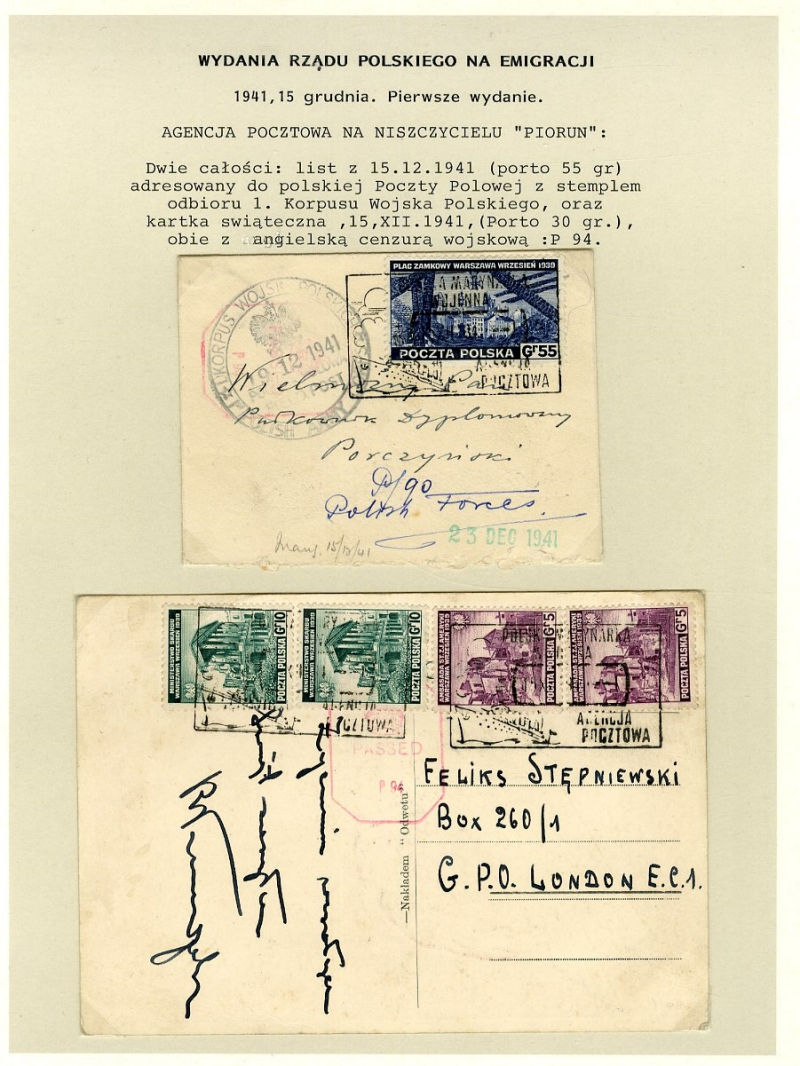 WYDANIA RZĄDU POLSKIEGO NA EMIGRACJI
1941,15 grudnia. Pierwsze wydanie.
AGENCJA POCZTOWA NA NISZCZYCIELU "PIORUN":
Dwie całości: list z 15.12.1941 (porto 55 gr)
adresowany do polskiej Poczty Polowej z stemplem
odbioru 1. Korpusu Wojska Polskiego, oraz
kartka swiąteczna ,15,XII.1941,(Porto 30 gr.),
obie z angielską cenzurą wojskową :P 94.
PLAC ZAMKOWY WARSZAWA WRZESIEŃ 1939
POCZTA POLSKA Gr 55
AGENCJA
POCZTOWA
KORPUS WOJSK POLSKICH
19.12.1941
POLISH ARMY
Wielmożny Pan
Pułkownik Dyplomowany
Porczyński
P/90
Polish Forces.
23 DEC 1941
15/12/41
MINISTERSTWO SKARBU
WARSZAWA WRZESIEŃ 1939
POCZTA POLSKA Gr 10
MINISTERSTWO SKARBU
WARSZAWA WRZESIEŃ 1939
POCZTA POLSKA Gr 10
WARSZAWA WRZESIEŃ 1939
POCZTA POLSKA Gr 5
WARSZAWA WRZESIEŃ 1939
POCZTA POLSKA Gr 5
AGENCJA
POCZTOWA
POLSKA MARYNARKA
AGENCJA
POCZTOWA
PASSED
P 94
—Nakładem "Odwetu"
FELIKS STĘPNIEWSKI
BOX 260/1
G.P.O. LONDON E.C.1.